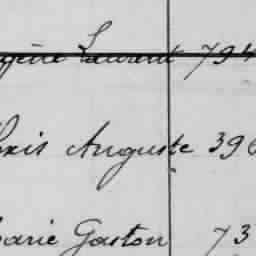 gène Laurent 794
exis Auguste 396
arie Gaston 73